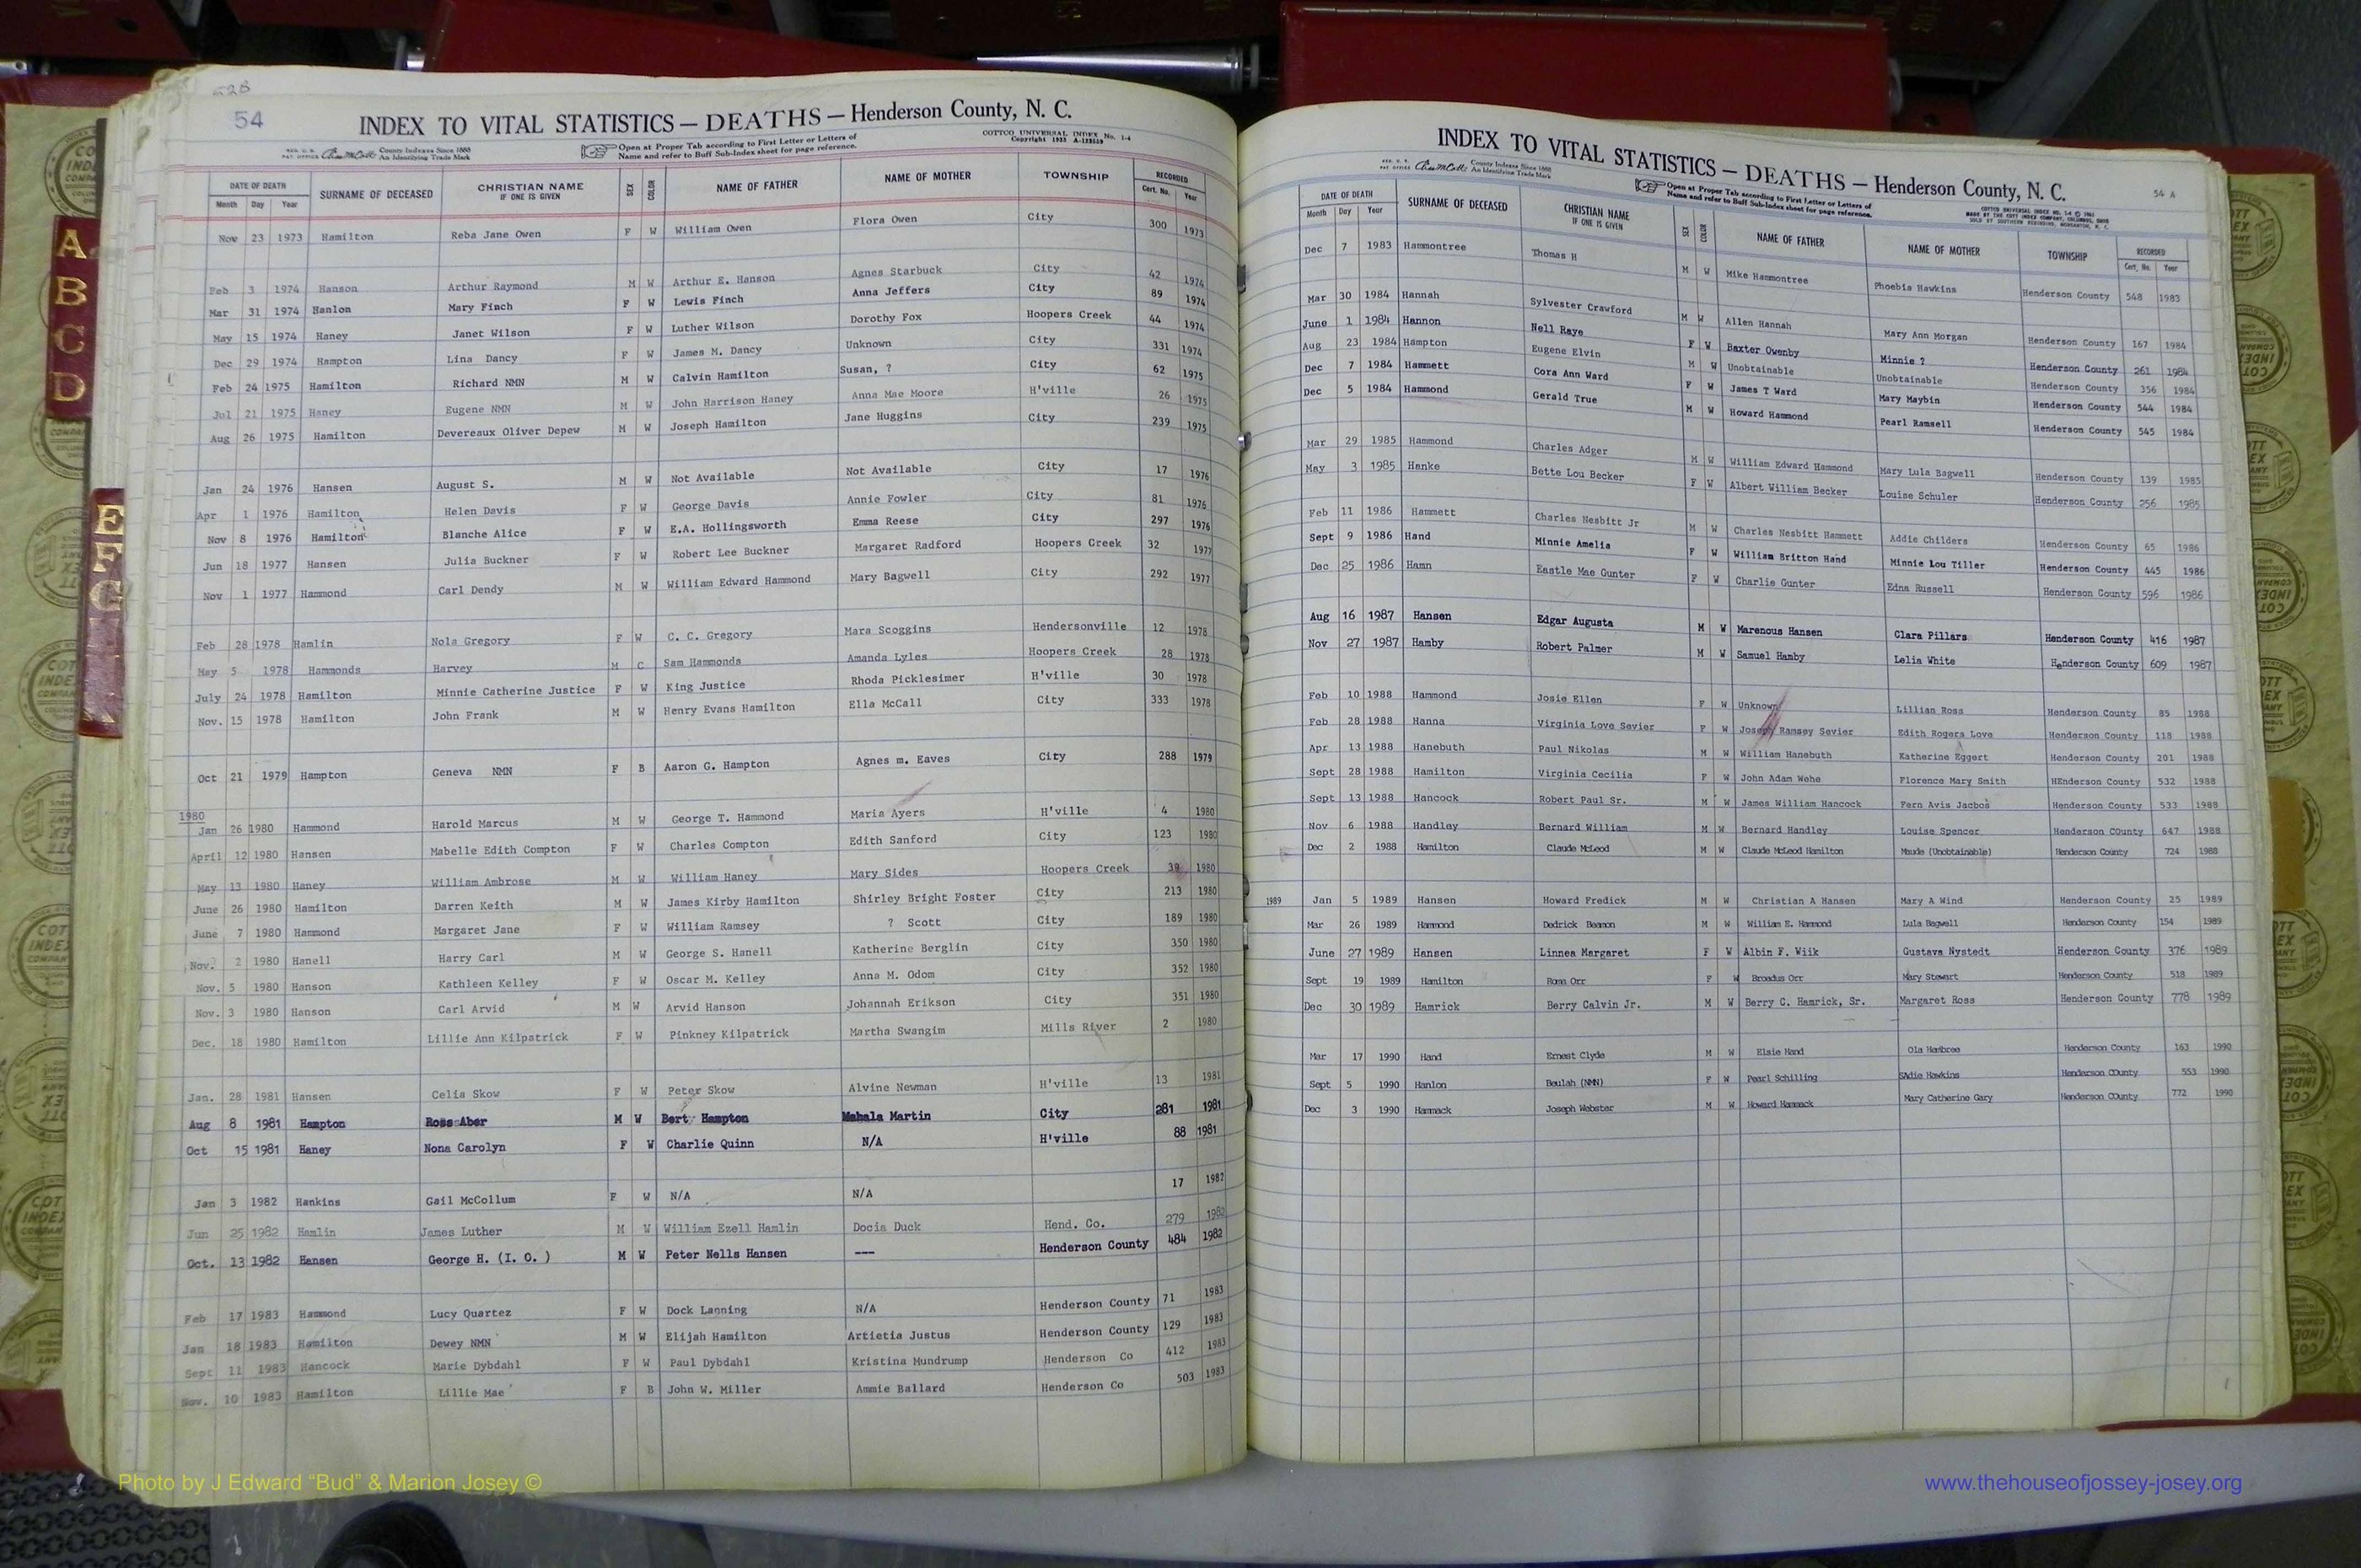 54
INDEX TO VITAL STATISTICS — DEATHS — Henderson County, N. C.
County Indexes Since 1888
An Identifying Trade Mark
Open at Proper Tab according to First Letter or Letters of
Name and refer to Buff Sub-Index sheet for page reference.
COTTCO UNIVERSAL INDEX No. 1-4
DATE OF DEATH SURNAME OF DECEASED CHRISTIAN NAME IF ONE IS GIVEN SEX COLOR NAME OF FATHER NAME OF MOTHER TOWNSHIP RECORDED
Month Day Year Cert. No. Year
Nov 23 1973 Hamilton Reba Jane Owen F W William Owen Flora Owen City 300 1973
Feb 3 1974 Hanson Arthur Raymond M W Arthur E. Hanson Agnes Starbuck City 42 1974
Mar 31 1974 Hanlon Mary Finch F W Lewis Finch Anna Jeffers City 89 1974
May 15 1974 Haney Janet Wilson F W Luther Wilson Dorothy Fox Hoopers Creek 44 1974
Dec 29 1974 Hampton Lina Dancy F W James M. Dancy Unknown City 331 1974
Feb 24 1975 Hamilton Richard NMN M W Calvin Hamilton Susan, ? City 62 1975
Jul 21 1975 Haney Eugene NMN M W John Harrison Haney Anna Mae Moore H'ville 26 1975
Aug 26 1975 Hamilton Devereaux Oliver Depew M W Joseph Hamilton Jane Huggins City 239 1975
Jan 24 1976 Hansen August S. M W Not Available Not Available City 17 1976
Apr 1 1976 Hamilton Helen Davis F W George Davis Annie Fowler City 81 1976
Nov 8 1976 Hamilton Blanche Alice F W E.A. Hollingsworth Emma Reese City 297 1976
Jun 18 1977 Hansen Julia Buckner F W Robert Lee Buckner Margaret Radford Hoopers Creek 32 1977
Nov 1 1977 Hammond Carl Dendy M W William Edward Hammond Mary Bagwell City 292 1977
Feb 28 1978 Hamlin Nola Gregory F W C. C. Gregory Mara Scoggins Hendersonville 12 1978
May 5 1978 Hammonds Harvey M C Sam Hammonds Amanda Lyles Hoopers Creek 28 1978
July 24 1978 Hamilton Minnie Catherine Justice F W King Justice Rhoda Picklesimer H'ville 30 1978
Nov. 15 1978 Hamilton John Frank M W Henry Evans Hamilton Ella McCall City 333 1978
Oct 21 1979 Hampton Geneva NMN F B Aaron G. Hampton Agnes m. Eaves City 288 1979
1980
Jan 26 1980 Hammond Harold Marcus M W George T. Hammond Maria Ayers H'ville 4 1980
April 12 1980 Hansen Mabelle Edith Compton F W Charles Compton Edith Sanford City 123 1980
May 13 1980 Haney William Ambrose M W William Haney Mary Sides Hoopers Creek 1980
June 26 1980 Hamilton Darren Keith M W James Kirby Hamilton Shirley Bright Foster City 213 1980
June 7 1980 Hammond Margaret Jane F W William Ramsey ? Scott City 189 1980
Nov. 2 1980 Hanell Harry Carl M W George S. Hanell Katherine Berglin City 350 1980
Nov. 5 1980 Hanson Kathleen Kelley F W Oscar M. Kelley Anna M. Odom City 352 1980
Nov. 3 1980 Hanson Carl Arvid M W Arvid Hanson Johannah Erikson City 351 1980
Dec. 18 1980 Hamilton Lillie Ann Kilpatrick F W Pinkney Kilpatrick Martha Swangim Mills River 2 1980
Jan. 28 1981 Hansen Celia Skow F W Peter Skow Alvine Newman H'ville 13 1981
Aug 8 1981 Hampton Ross Aber M W Bert Hampton Mahala Martin City 281 1981
Oct 15 1981 Haney Nona Carolyn F W Charlie Quinn N/A H'ville 88 1981
Jan 3 1982 Hankins Gail McCollum F W N/A N/A 17 1982
Jun 25 1982 Hamlin James Luther M W William Ezell Hamlin Docia Duck Hend. Co. 279 1982
Oct. 13 1982 Hansen George H. (I. O. ) M W Peter Nells Hansen --- Henderson County 484 1982
Feb 17 1983 Hammond Lucy Quartez F W Dock Lanning N/A Henderson County 71 1983
Jan 18 1983 Hamilton Dewey NMN M W Elijah Hamilton Artietia Justus Henderson County 129 1983
Sept 11 1983 Hancock Marie Dybdahl F W Paul Dybdahl Kristina Mundrump Henderson Co 412 1983
Nov. 10 1983 Hamilton Lillie Mae F B John W. Miller Ammie Ballard Henderson Co 503 1983
INDEX TO VITAL STATISTICS — DEATHS — Henderson County, N. C.
54 A
County Indexes Since 1888
An Identifying Trade Mark
Open at Proper Tab according to First Letter or Letters of
Name and refer to Buff Sub-Index sheet for page reference.
DATE OF DEATH SURNAME OF DECEASED CHRISTIAN NAME IF ONE IS GIVEN SEX COLOR NAME OF FATHER NAME OF MOTHER TOWNSHIP RECORDED
Month Day Year Cert. No. Year
Dec 7 1983 Hammontree Thomas H M W Mike Hammontree Phoebia Hawkins Henderson County 548 1983
Mar 30 1984 Hannah Sylvester Crawford M W Allen Hannah Mary Ann Morgan Henderson County 167 1984
June 1 1984 Hannon Nell Raye F W Baxter Owenby Minnie ? Henderson County 261 1984
Aug 23 1984 Hampton Eugene Elvin M W Unobtainable Unobtainable Henderson County 356 1984
Dec 7 1984 Hammett Cora Ann Ward F W James T Ward Mary Maybin Henderson County 544 1984
Dec 5 1984 Hammond Gerald True M W Howard Hammond Pearl Ramsell Henderson County 545 1984
Mar 29 1985 Hammond Charles Adger M W William Edward Hammond Mary Lula Bagwell Henderson County 139 1985
May 3 1985 Hanke Bette Lou Becker F W Albert William Becker Louise Schuler Henderson County 256 1985
Feb 11 1986 Hammett Charles Nesbitt Jr M W Charles Nesbitt Hammett Addie Childers Henderson County 65 1986
Sept 9 1986 Hand Minnie Amelia F W William Britton Hand Minnie Lou Tiller Henderson County 445 1986
Dec 25 1986 Hamn Eastle Mae Gunter F W Charlie Gunter Edna Russell Henderson County 596 1986
Aug 16 1987 Hansen Edgar Augusta M W Marenous Hansen Clara Pillars Henderson County 416 1987
Nov 27 1987 Hamby Robert Palmer M W Samuel Hamby Lelia White Henderson County 609 1987
Feb 10 1988 Hammond Josie Ellen F W Unknown Lillian Ross Henderson County 85 1988
Feb 28 1988 Hanna Virginia Love Sevier F W Joseph Ramsey Sevier Edith Rogers Love Henderson County 118 1988
Apr 13 1988 Hanebuth Paul Nikolas M W William Hanebuth Katherine Eggert Henderson County 201 1988
Sept 28 1988 Hamilton Virginia Cecilia F W John Adam Wehe Florence Mary Smith HEnderson County 532 1988
Sept 13 1988 Hancock Robert Paul Sr. M W James William Hancock Fern Avis Jacbos Henderson County 533 1988
Nov 6 1988 Handley Bernard William M W Bernard Handley Louise Spencer Henderson COunty 647 1988
Dec 2 1988 Hamilton Claude McLeod M W Claude McLeod Hamilton Maude (Unobtainable) Henderson County 724 1988
1989 Jan 5 1989 Hansen Howard Fredick M W Christian A Hansen Mary A Wind Henderson County 25 1989
Mar 26 1989 Hammond Dedrick Beamon M W William E. Hammond Lula Bagwell Henderson County 154 1989
June 27 1989 Hansen Linnea Margaret F W Albin F. Wiik Gustava Nystedt Henderson County 376 1989
Sept 19 1989 Hamilton Roma Orr F W Broadus Orr Mary Stewart Henderson County 518 1989
Dec 30 1989 Hamrick Berry Calvin Jr. M W Berry C. Hamrick, Sr. Margaret Ross Henderson County 778 1989
Mar 17 1990 Hand Ernest Clyde M W Elsie Hand Ola Henderson County 163 1990
Sept 5 1990 Hanlon Beulah (NMN) F W Pearl Schilling SAdie Hawkins Henderson COunty 553 1990
Dec 3 1990 Hammack Joseph Webster M W Howard Hammack Mary Catherine Gary Henderson COunty 772 1990
A
B
C
D
E
F
G
Photo by J Edward “Bud” & Marion Josey ©
www.thehouseofjossey-josey.org